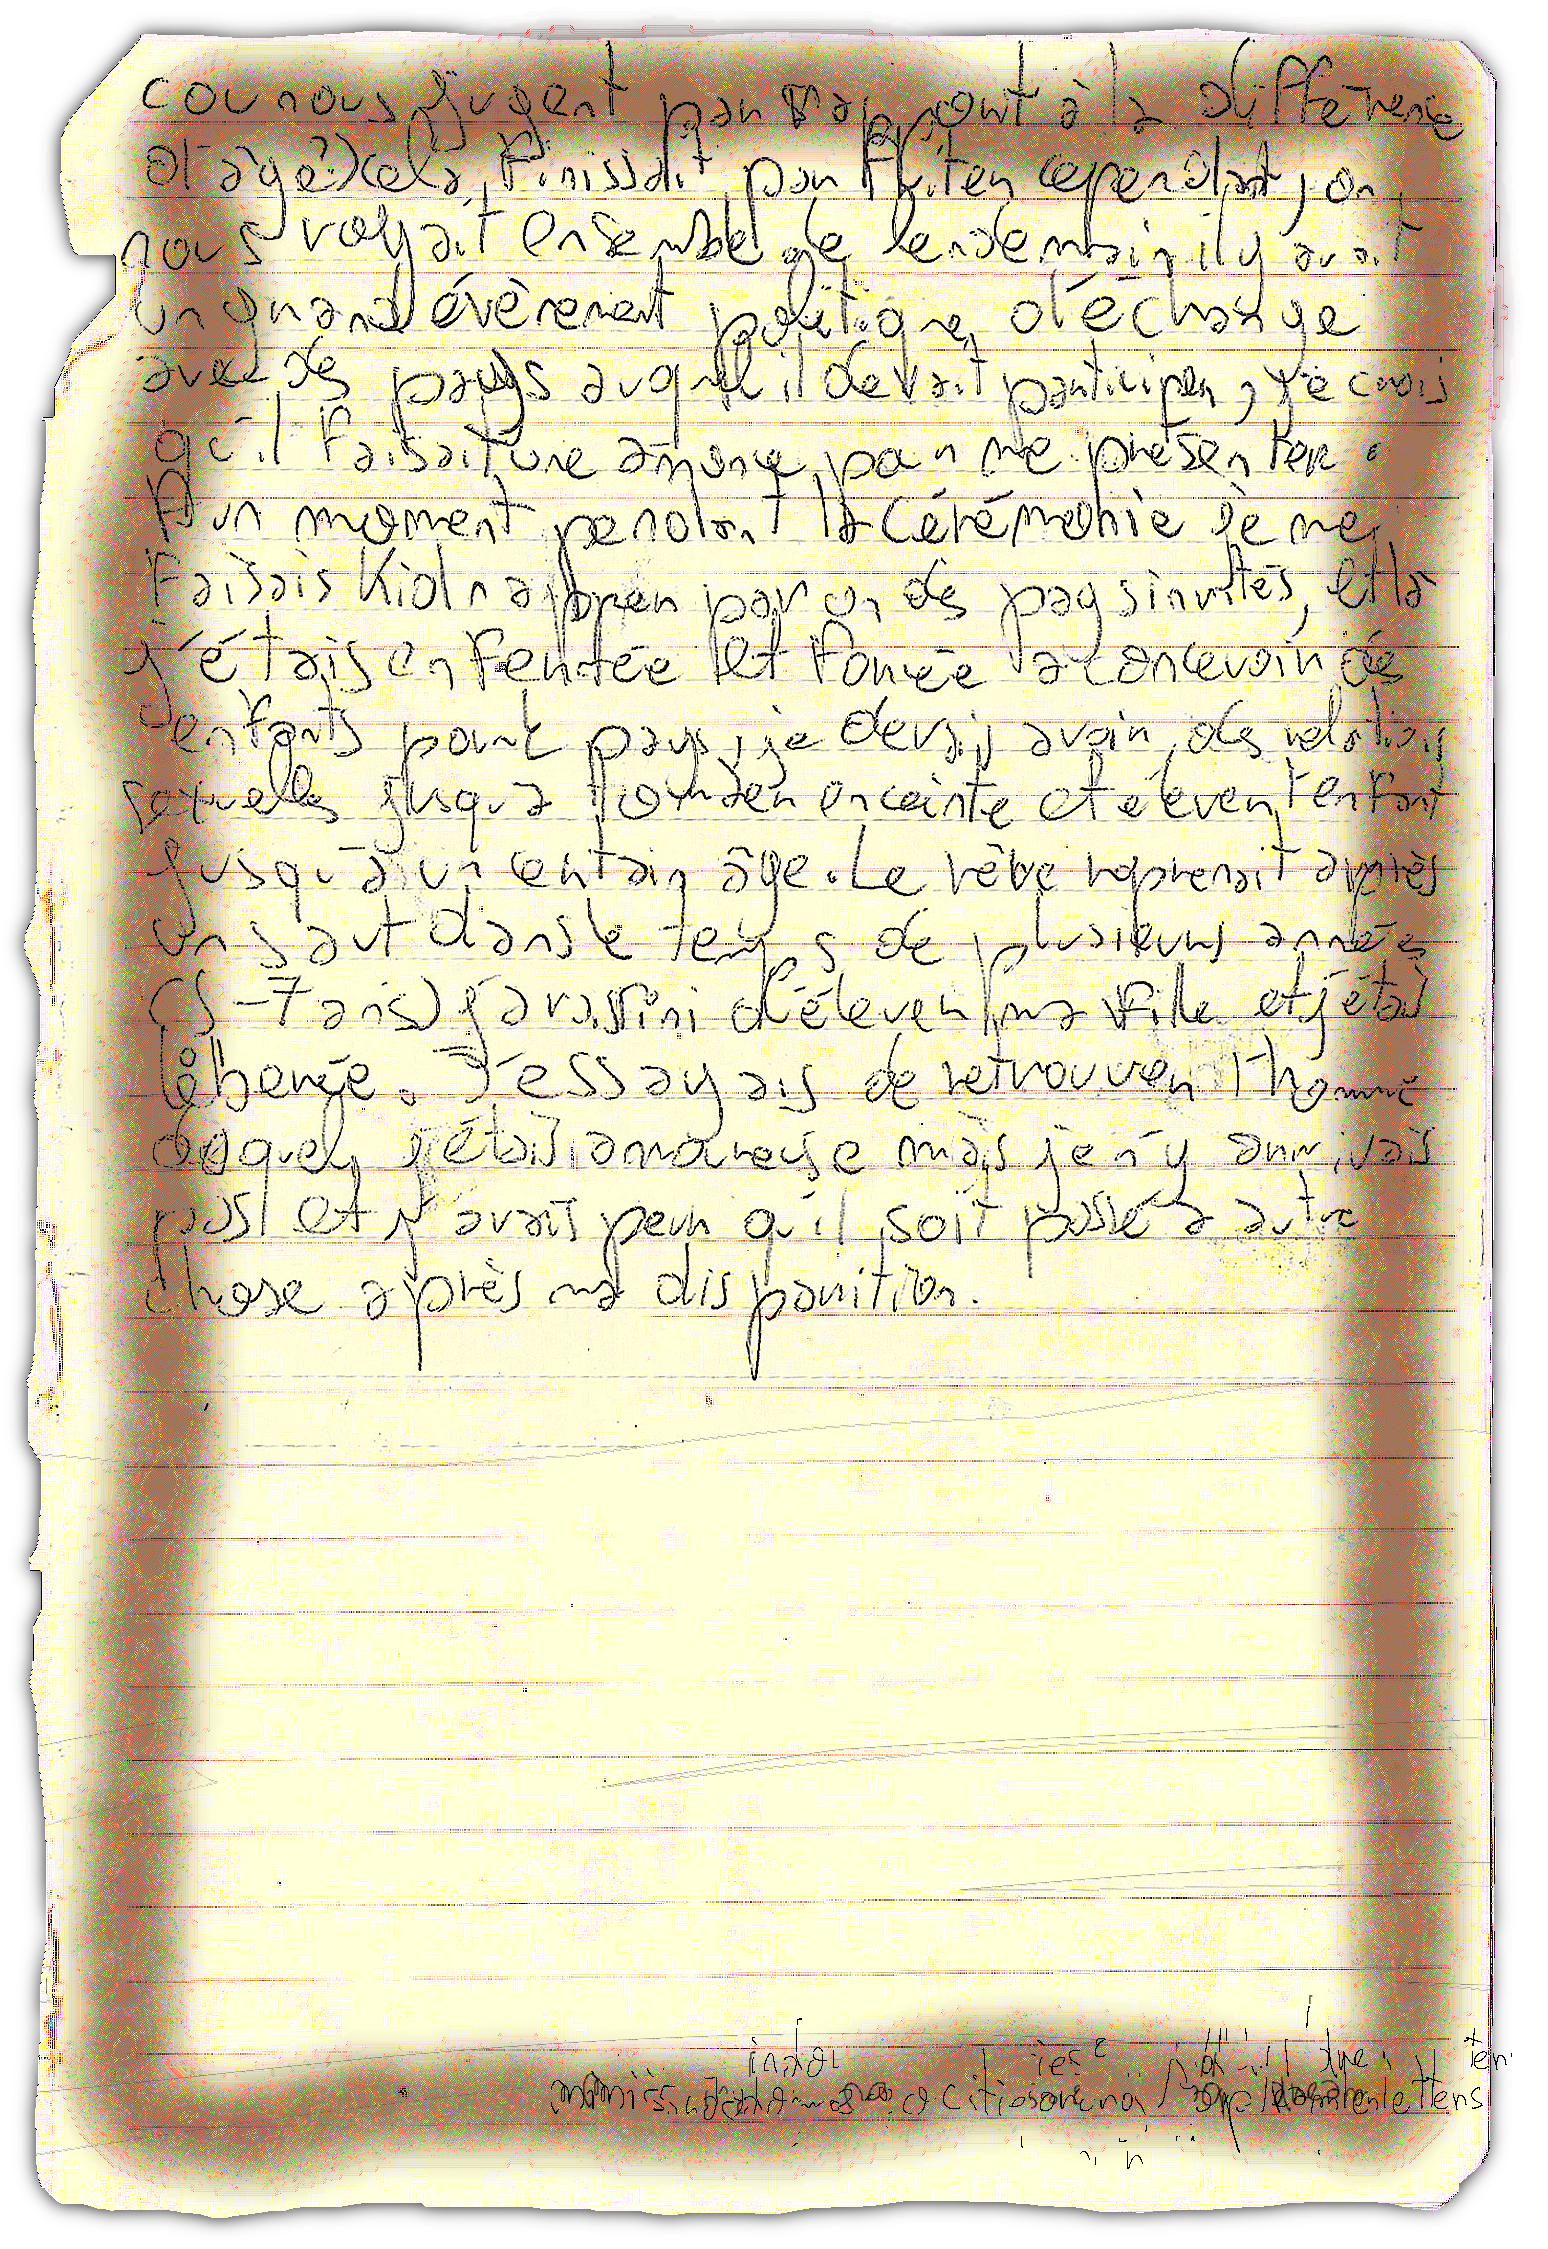 cou nous jugent par rapport à la différence
d'âge?) cela finissait par fuiter cependant, on
nous voyait ensemble le lendemain il y avait
un grand évènement politique d'échange
avec des pays auquel il devait participer, je crois
qu'il faisait une annonce pour me présenter.
A un moment pendant la cérémonie je me
faisais kidnapper par un des pays invités, et là
j'étais enfermée et forcée à concevoir des
enfants pour le pays, je devais avoir des relations
sexuelles jusqu'à tomber enceinte et élever l'enfant
jusqu'à un certain âge. Le rêve reprenait après
un saut dans le temps de plusieurs années
(5-7 ans) j'avais fini d'élever ma fille et j'étais
libérée. J'essayais de retrouver l'homme
duquel j'étais amoureuse mais je n'y arrivais
pas et j'avais peur qu'il soit passé à autre
chose après ma disparition.